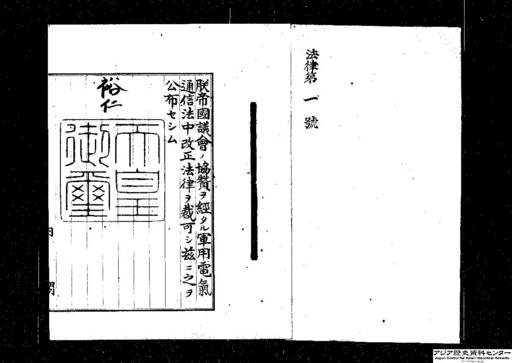 法律第一號
朕帝國議會ノ協贊ヲ經タル軍用電氣
通信法中改正法律ヲ裁可シ茲ニ之ヲ
公布セシム
裕仁
天皇
御璽
アジア歴史資料センター
Japan Center for Asian Historical Records